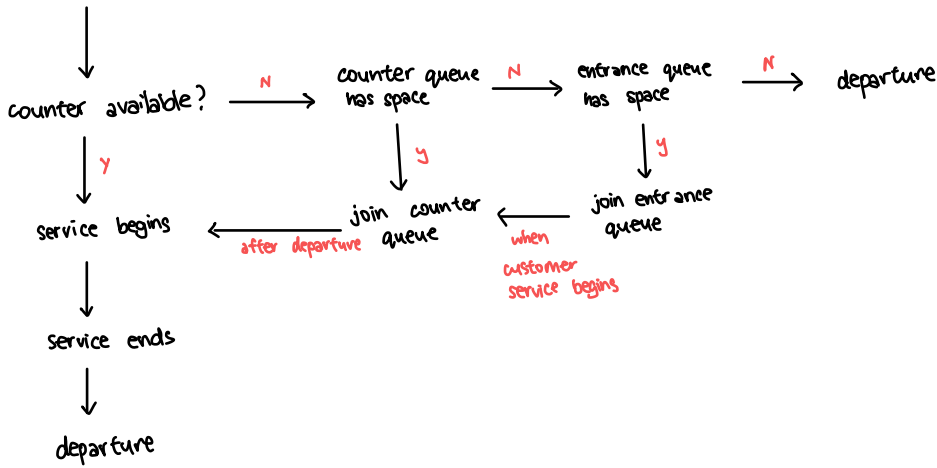 counter available?
N
counter queue
has space
N
entrance queue
has space
N
departure
Y
y
y
service begins
after departure
join counter
queue
when
customer
service begins
join entrance
queue
service ends
departure